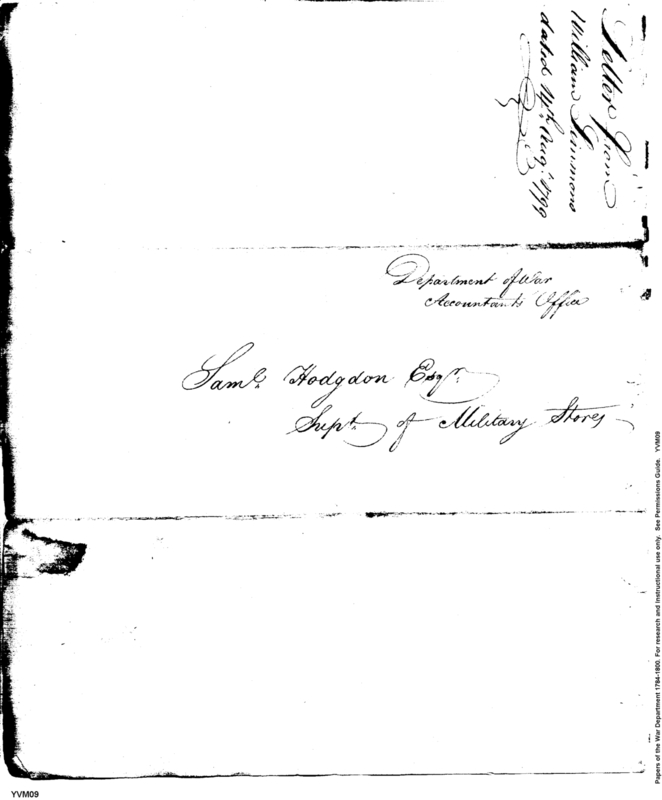 Letter from
William Simmons
dated 14th Augt. 1799
Department of War
Accountants Office
Saml. Hodgdon Esqr.
Supt. of Military Stores
Papers of the War Department 1784-1800. For research and instructional use only. See Permissions Guide. YVM09
YVM09